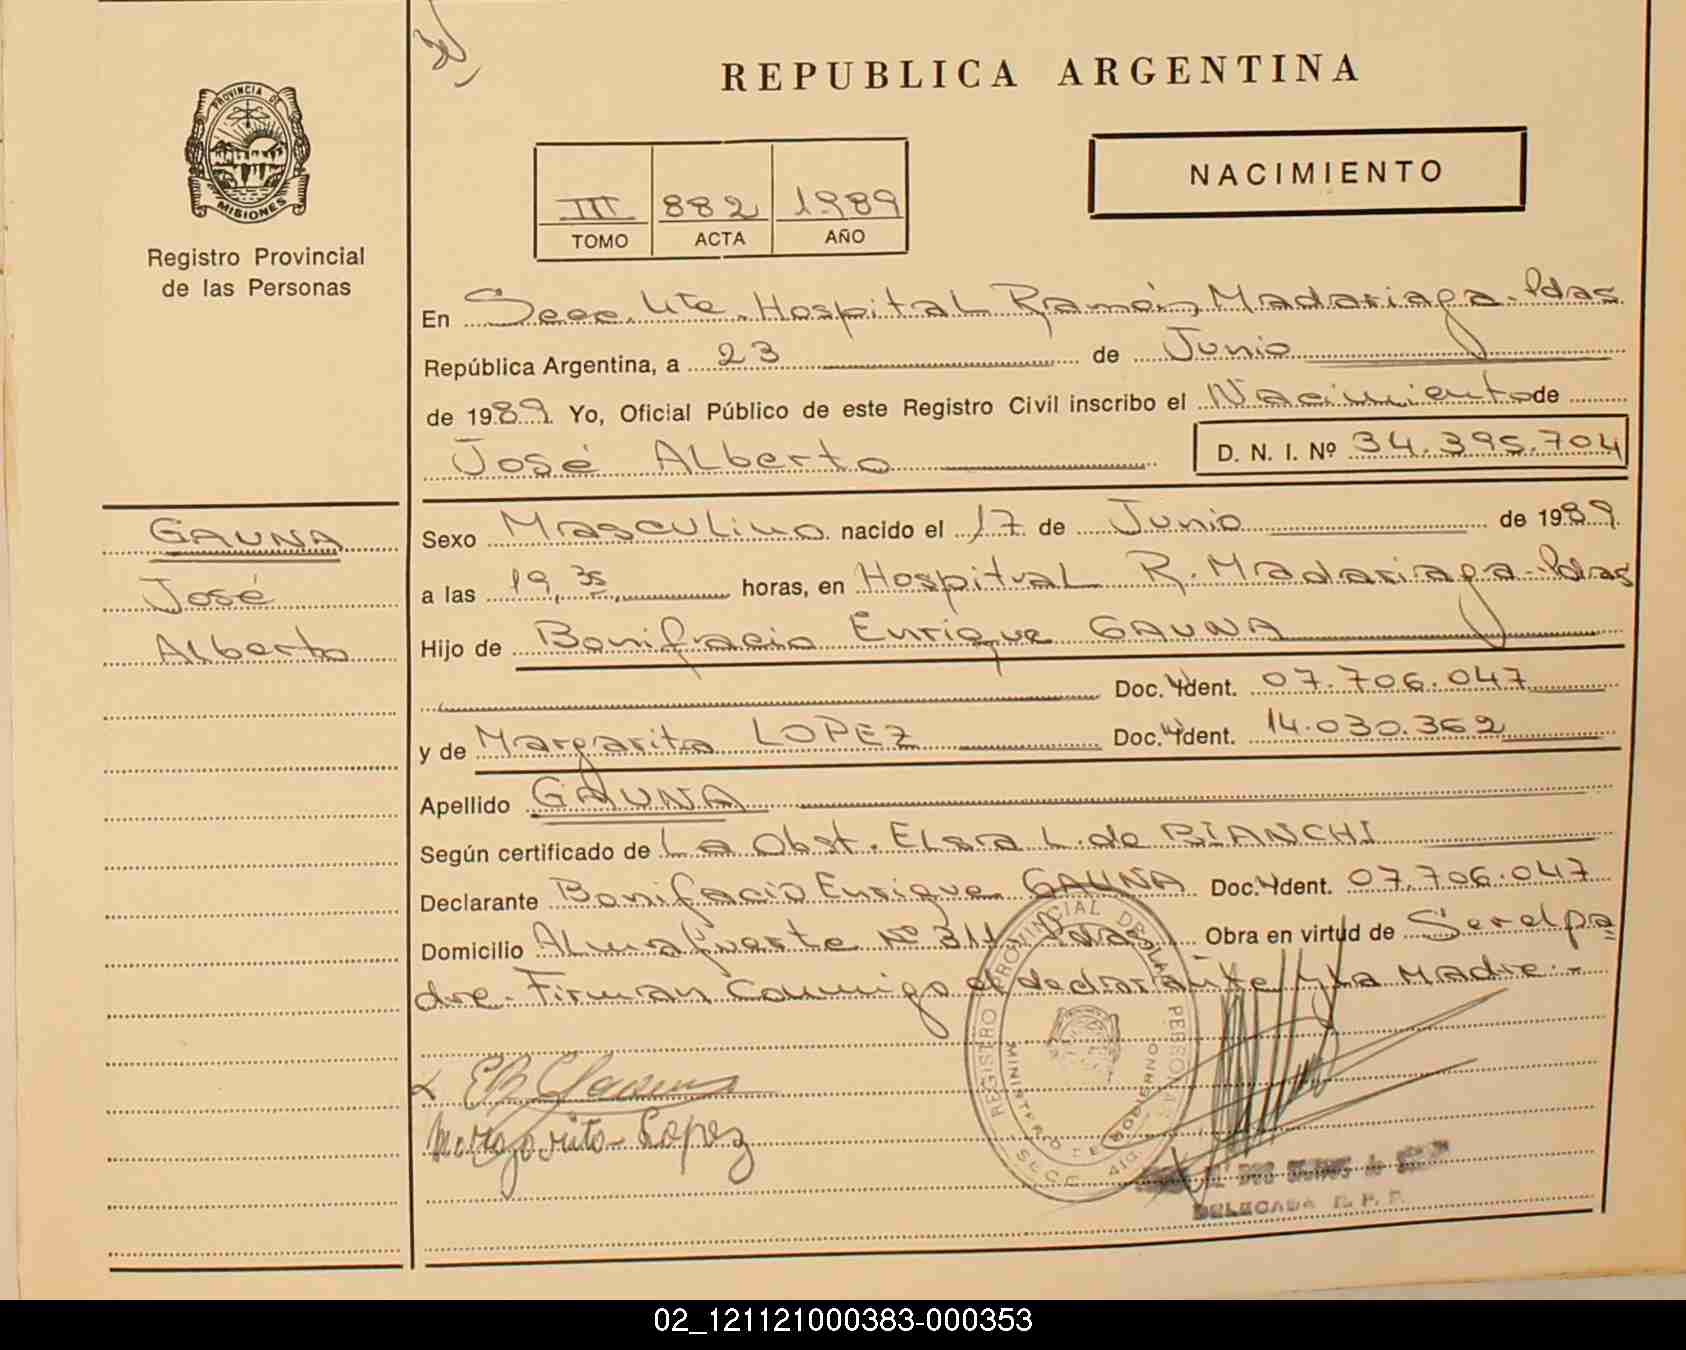 REPUBLICA ARGENTINA
PROVINCIA DE
MISIONES
Registro Provincial
de las Personas
NACIMIENTO
III 882 1989
TOMO ACTA AÑO
En Secc. 4ta. Hospital Ramón Madariaga - Pdas
República Argentina, a 23 de Junio
de 1989. Yo, Oficial Público de este Registro Civil inscribo el Nacimiento de
José Alberto D. N. I. Nº 34.395.704
GAUNA
José
Alberto
Sexo Masculino nacido el 17 de Junio de 1989.
a las 19,35, horas, en Hospital R. Madariaga - Pdas
Hijo de Bonifacio Enrique GAUNA
Doc. Ident. 07.706.047
y de Margarita LOPEZ Doc. Ident. 14.030.362
Apellido GAUNA
Según certificado de La Obst. Elsa L. de BIANCHI
Declarante Bonifacio Enrique GAUNA Doc. Ident. 07.706.047
Domicilio Almafuerte Nº 311. Pdas Obra en virtud de Ser el pa
dre. Firman conmigo el declarante y la Madre.-
Margarita Lopez
REGISTRO PROVINCIAL DE LAS PERSONAS
MINISTERIO DE GOBIERNO
SECC. 4ta
DELEGADA R. P. P.
02_121121000383-000353